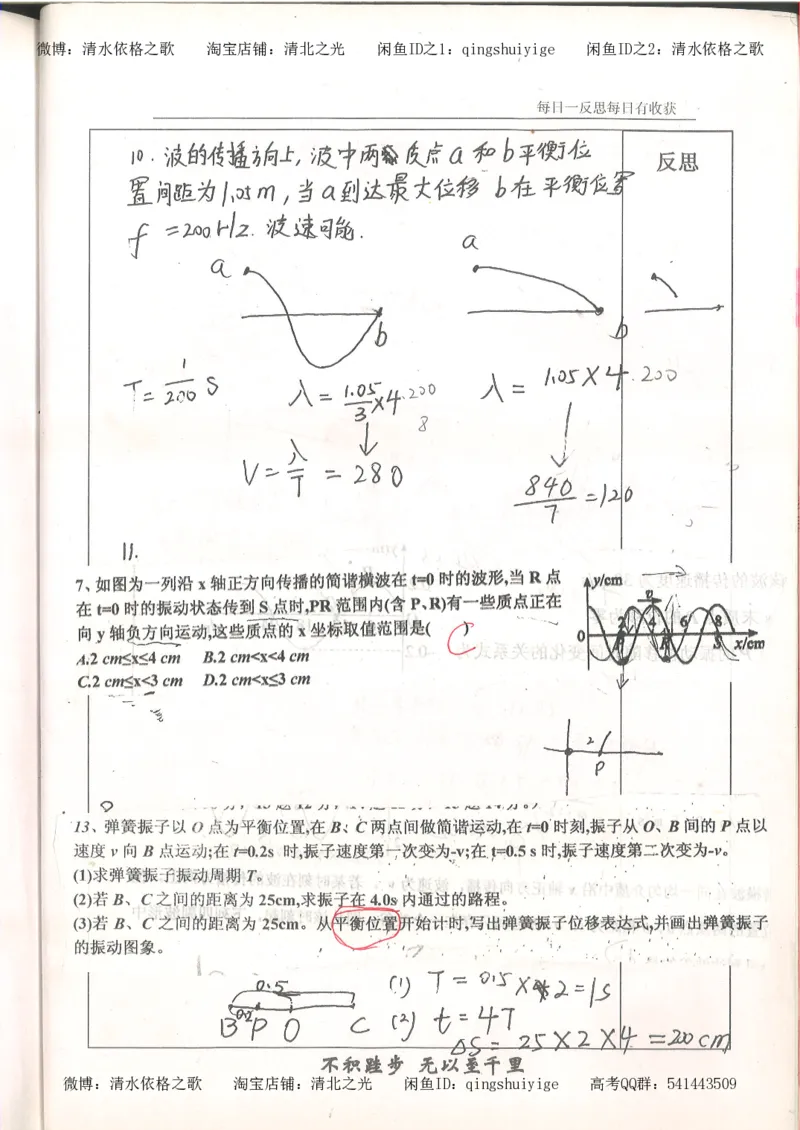 微博：清水依格之歌 淘宝店铺：清北之光 闲鱼ID之1：qingshuiyige 闲鱼ID之2：清水依格之歌
每日一反思每日有收获
反思
10. 波的传播方向上，波中两质点a和b平衡位
置间距为1.05m，当a到达最大位移 b在平衡位置
f=200Hz. 波速可能.
a
a
b
b
T=1/200 S
λ=1.05/3×4·200
8
λ=1.05×4·200
V=λ/T=280
840/7=120
11.
7、如图为一列沿 x 轴正方向传播的简谐横波在 t=0 时的波形,当 R 点
在 t=0 时的振动状态传到 S 点时,PR 范围内(含 P、R)有一些质点正在
向 y 轴负方向运动,这些质点的 x 坐标取值范围是( C )
A.2 cm≤x≤4 cm B.2 cm<x<4 cm
C.2 cm≤x<3 cm D.2 cm<x≤3 cm
y/cm
v
0 2 4 6 8
P R S x/cm
2
P
13、弹簧振子以 O 点为平衡位置,在 B、C 两点间做简谐运动,在 t=0 时刻,振子从 O、B 间的 P 点以
速度 v 向 B 点运动;在 t=0.2s 时,振子速度第一次变为-v;在 t=0.5 s 时,振子速度第二次变为-v。
(1)求弹簧振子振动周期 T。
(2)若 B、C 之间的距离为 25cm,求振子在 4.0s 内通过的路程。
(3)若 B、C 之间的距离为 25cm。从平衡位置开始计时,写出弹簧振子位移表达式,并画出弹簧振子
的振动图象。
0.5
0.2
B P O C
(1) T=0.5×2=1s
(2) t=4T
ΔS=25×2×4=200cm
不积跬步 无以至千里
微博：清水依格之歌 淘宝店铺：清北之光 闲鱼ID：qingshuiyige 高考QQ群：541443509